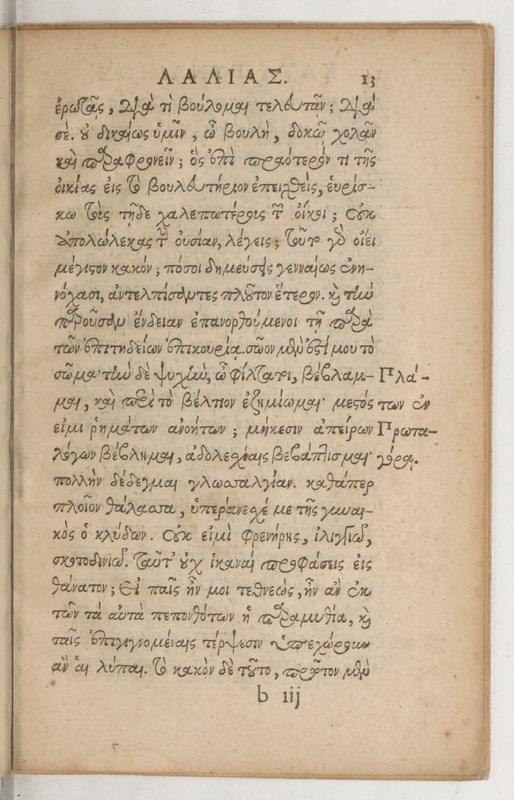 ΛΑΛΙΑΣ. 13
ἐρωτᾷς, διὰ τί βούλομαι τελευτᾶν; διὰ
σέ. οὐ δικαίως ὑμῖν, ὦ βουλὴ, δοκῶ χολᾶν
καὶ παραφρονεῖν; ὃς ἐπὶ πραότερόν τι τῆς
οἰκίας εἰς τὸ βουλευτήριον ἐπειχθεὶς, εὑρίσ-
κω τοὺς τῇδε χαλεπωτέρους τῶν οἴκοι; Οὐκ
ἀπολώλεκας τὴν οὐσίαν, λέγεις; τοῦτο γὸ οἴει
μέγιστον κακόν; πόσοι δημεύσεις γενναίως ἐνη-
νόχασι, ἀντελπίσαντες πλοῦτον ἕτερον. καὶ τὴν
παροῦσαν ἔνδειαν ἐπανορθούμενοι τῇ παρὰ
τῶν ἐπιτηδείων ἐπικουρίᾳ. σῶον μὲν ἐστί μου τὸ
σῶμα· τὴν δὲ ψυχὴν, ὦ φίλτατοι, βέβλαμ- Πλά-
μαι, καὶ περὶ τὸ βέλτιον ἐζημίωμαι· μεστός των ἐν
εἰμι ῥημάτων ἀνοήτων; μήκεσιν ἀπείρων Πρωτα-
λόγων βέβλημαι, ἀδολεσχίαις βεβάπτισμαι· γόρᾳ.
πολλὴν δέδεγμαι γλωσσαλγίαν. καθάπερ
πλοῖον θάλασσα, ὑπεράνεσχέ με τῆς γυναι-
κὸς ὁ κλύδων. Οὐκ εἰμὶ φρενήρης, ἰλιγγιῶ,
σκοτοδινιῶ. ταῦτ' οὐχ ἱκαναὶ προφάσεις εἰς
θάνατον; Εἰ παῖς ἦν μοι τεθνεὼς, ἦν ἂν ἐκ
τῶν τὰ αὐτὰ πεπονθότων ἡ παραμυθία, καὶ
ταῖς ἐπιγιγνομέναις τέρψεσιν ὑπεχώρησαν
ἂν αἱ λύπαι. τὸ κακὸν δὲ τοῦτο, πρῶτον μὲν
b iij